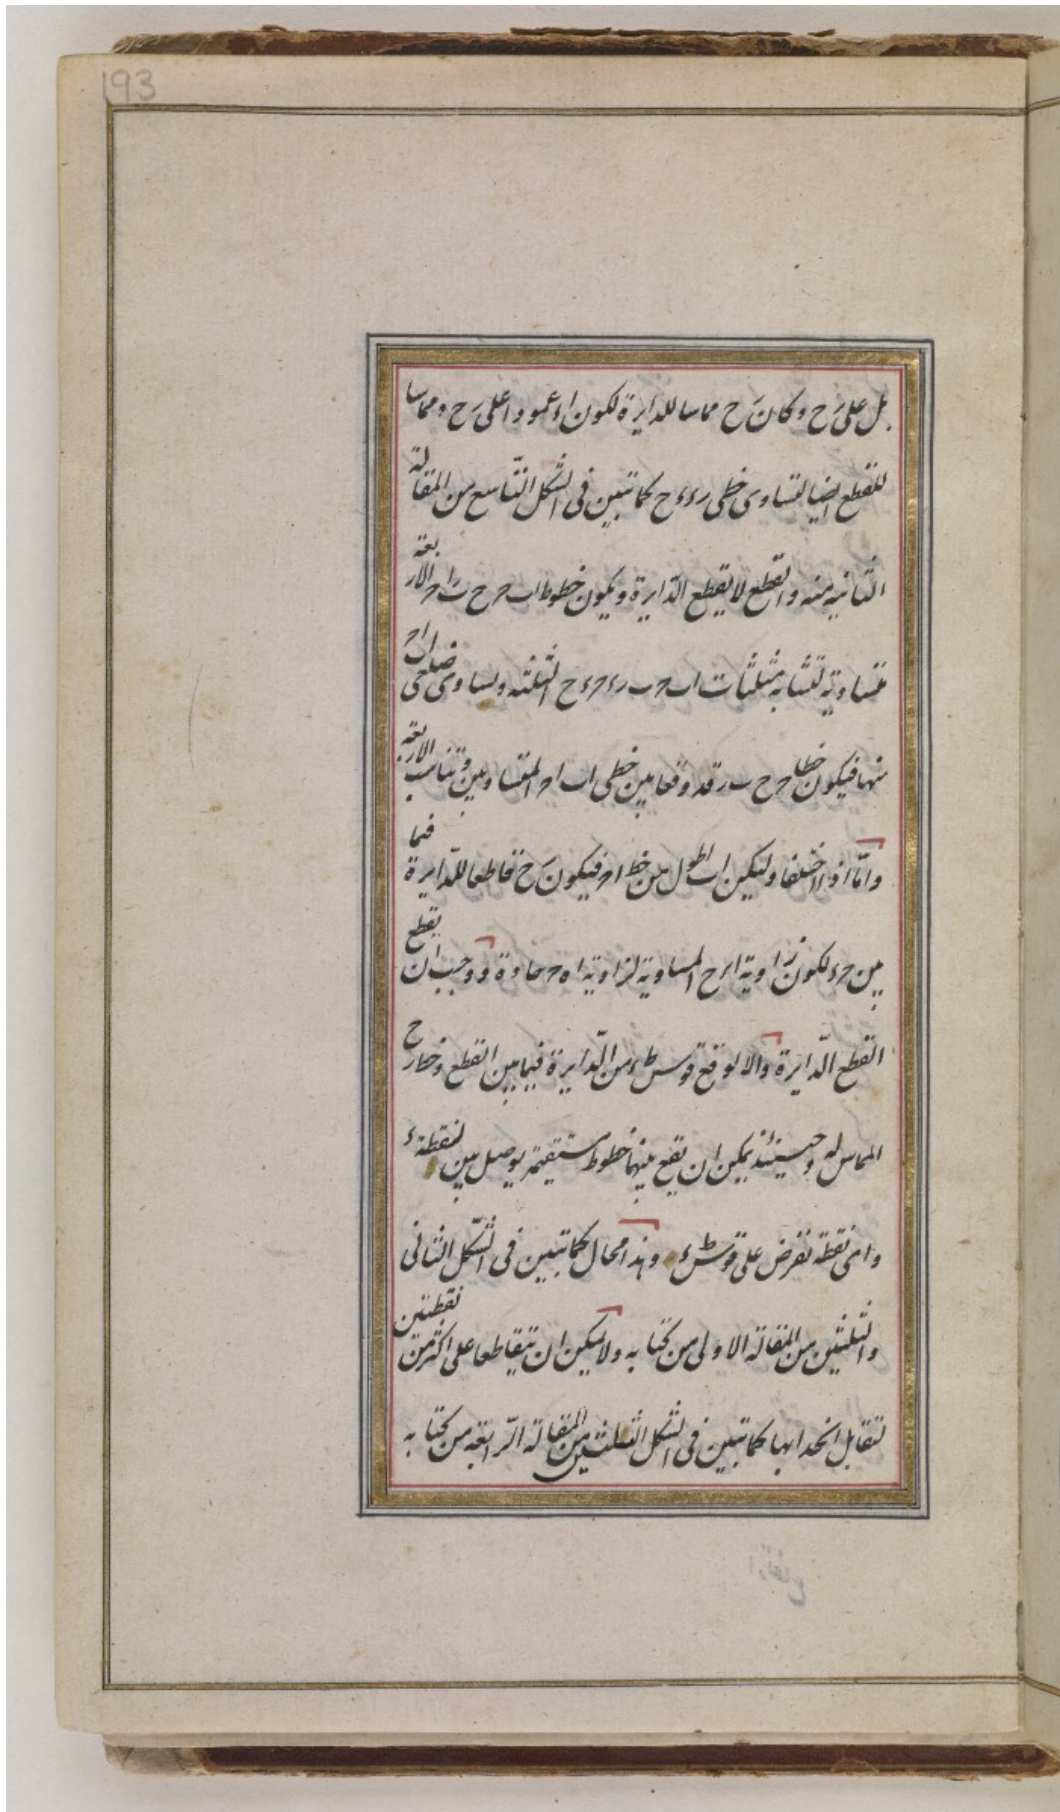 193
بل على رح وكان رح مماسا للدايرة لكون اء عمودا على رح ومماسا
للقطع ايضا لتساوى خطى رء ءح كما تبين فى الشكل التاسع من المقالة
الثانيه منه والقطع لا يقطع الدايرة ويكون خطوط اب حح ب ر اح الاربعة
متساوية لتشابه مثلثات اب ح ب رء حء ح الثلثه وتساوى ضلعى اب اح
منها فيكون خطا حح ب ر قد وقعا بين خطى اب اح المتساويين وتناسب الاربعة
واما اذا اختلفا وليكن اب اطول من خط اح فيكون رح قاطعا للدايرة فيما
بين حء لكون زاوية ارح المساوية لزاوية اه ح حادة ووجب ان يقطع
القطع الدايرة والا لوقع قوس طء من الدايرة فيما بين القطع وخط رح
المماس له وحينئذ يمكن ان يقع بينهما خطوط مستقيمة يوصل بين نقطة ء
واى نقطة تفرض على قوس طء وهذا محال كما تبين فى الشكل الثانى
والثلثين من المقالة الاولى من كتابه ولا يمكن ان يتقاطعا على اكثر من نقطتين
لتقابل انحدابها كما تبين فى الشكل الثلثين من المقالة الرابعة من كتابه